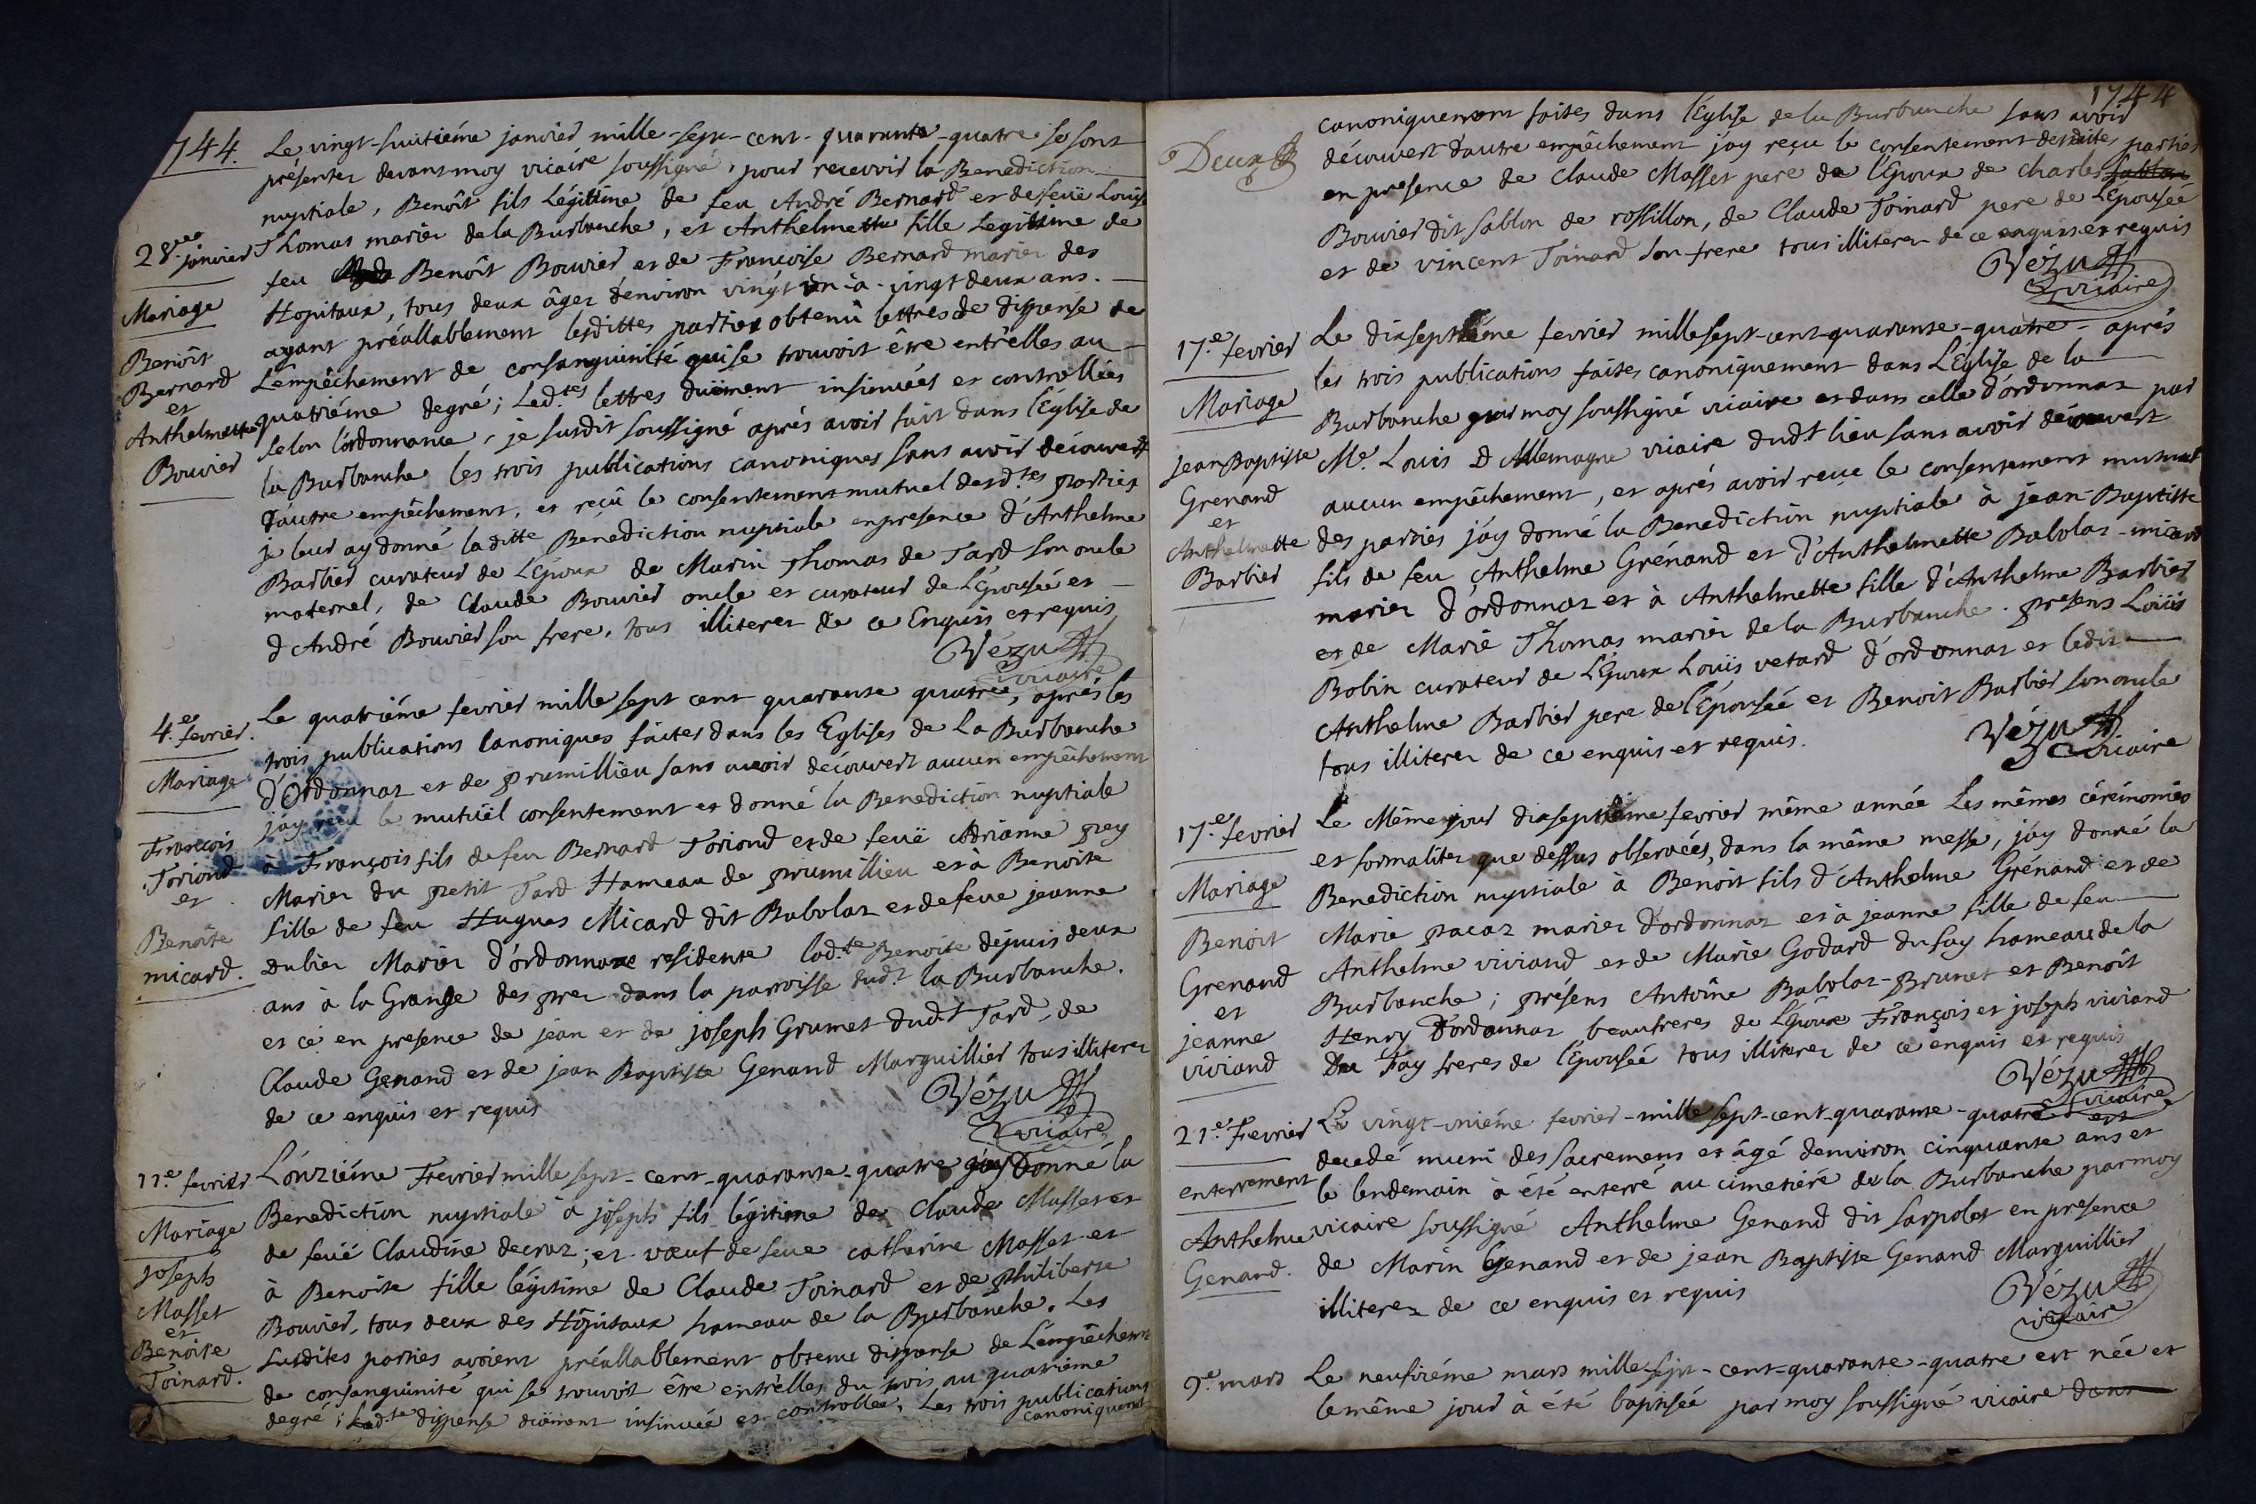 744.
Le vingt-huitiéme janvier mille-sept-cent-quarante-quatre se sont
présentez devant moy vicaire soussigné, pour recevoir la Benediction
nuptiale, Benôit fils Légitime de feu André Bernard et de feuë Louise
28.e janvier
Thomas mariez de la Burbanche, et Anthelmette fille Legitime de
feu Benôit Bouvier et de Francoise Bernard mariez des
Mariage
Hopitaux, tous deux âgez d'environ vingt un à vingt deux ans.
ayant préallablement lesdittes parties obtenû lettres de dispense de
Benôit
Bernard
et
Anthelmette
Bouvier
L'empêchement de consanguinité qui se trouvoit être entrèlles au
quatriéme degré; Led.tes lettres duëment insinuées et controllées
selon l'ordonnance, je susdit soussigné aprés avoir fait dans l'Eglise de
la Burbanche les trois publications canoniques sans avoir découvert
d'autre empêchement, et reçû le consentement mutuel desd.tes parties
je leur ay donné laditte Bénediction nuptiale en presence d'Anthelme
Barbier curateur de L'Epoux de Marin Thomas de Tard son oncle
maternel, de Claude Bouvier oncle et curateur de L'Epousée et
d'André Bouvier son frere, tous illiterez de ce Enquis et requis
Vézu
vicaire
4.e fevrier.
Le quatriéme fevrier mille sept cent quarante quatre, aprés les
trois publications Canoniques faites dans les Eglises de La Burbanche
Mariage
d'Ordonnaz et de prumillieu sans avoir découvert aucun empêchement
j'ay reçu le mutüel consentement et donné la Benediction nuptiale
François
Toriond
et
Benoite
micard.
à François fils de feu Bernard Toriond et de feuë Adrianne prey
Mariez du petit Tard Hameau de prumillieu et à Benoite
fille de feu Hugues Micard dit Babolaz et de feue jeanne
dubiez Mariez d'ordonnaz residente lad.te Benoite depuis deux
ans à la Grange des prez dans la parroisse dud.t la Burbanche.
et ce en presence de jean et de joseph Grumet dud.t Tard, de
Claude Genand et de jean Baptiste Genand Marguillier tous illiterez
de ce enquis et requis
Vézu
vicaire
11.e fevrier
L'onziéme Fevrier mille sept-cent-quarante-quatre j'ay Donné la
Mariage
Benediction nuptiale à joseph fils légitime de Claude Masset et
de feuë Claudine decroz; et vœuf de feue catharine Masset et
joseph
Masset
et
Benoite
Toinard.
à Benoite fille légitime de Claude Toinard et de philiberte
Bouvier, tous deux des Hôpitaux hameau de la Burbanche. Les
susdites parties avoient préallablement obtenu dispense de L'empêchemt
de consanguinité qui se trouvoit être entrèlles du trois au quatriéme
degré; Lad.te dispense düement insinuée et controllée, Les trois publications
canoniquemt
1744
Deux
canoniquement faites dans l'Eglise de la Burbanche sans avoir
découvert d'autre empêchement j'ay reçu le consentement desdites parties
en presence de Claude Masset pere de l'Epoux de charles sablon
Bouvier dit sablon de rossillon, de Claude Toinard pere de L'Epousée
et de vincent Toinard son frere tous illiterez de ce enquis et requis
Vézu
vicaire
17.e fevrier
Le dixseptiéme fevrier mille sept-cent-quarante-quatre - aprés
les trois publications faites canoniquement dans L'Eglise de la
Mariage
Burbanche par moy soussigné vicaire et dans celle d'ordonnaz par
jean Baptiste
Grenand
et
Anthelmette
Barbier
M.e Louis D'Allemagne vicaire dud.t lieu sans avoir découvert
aucun empêchement, et aprés avoir reçue le consentement mutuel
des parties j'ay donné la Benediction nuptiale à jean-Baptiste
fils de feu Anthelme Grénand et d'Anthelmette Babolaz-micard
mariez d'ordonnaz et à Anthelmette fille d'Anthelme Barbier
et de Marie Thomas mariez de la Burbanche. presens Loüis
Bobin curateur de L'Epoux Loüis vetard d'ordonnaz et ledit
Anthelme Barbier pere de l'Epousée et Benoit Barbier son oncle
tous illiterez de ce enquis et requis.
Vézu
vicaire
17.e fevrier
Le Même jour dixseptiéme fevrier même année Les mêmes cérémonies
et formalitez que dessus observées, dans la même messe, j'ay donné la
Mariage
Benediction nuptiale à Benoit fils d'Anthelme Grénand et de
Benoit
Grenand
et
jeanne
viviand
Marie pacaz mariez d'ordonnaz et à jeanne fille de feu
Anthelme viviand et de Marie Godard du fay hameau de la
Burbanche; présens Antoine Babolaz-Brunet et Benoît
Henry d'ordonnaz beaufreres de L'Epoux François et joseph viviand
du Fay freres de l'épousée tous illiterez de ce enquis et requis
Vézu
vicaire
21.e Fevrier
Le vingt-uniéme fevrier-mille sept-cent-quarante-quatre est
decedé muni des sacremens et âgé denviron cinquante ans et
enterrement
le lendemain à été enterré au cimetiére de la Burbanche par moy
Anthelme
Genand.
vicaire soussigné Anthelme Genand dit sarpolet en presence
de Marin Genand et de jean Baptiste Genand Marguillier
illiterez de ce enquis et requis
Vézu
vicaire
9.e mars
Le neufiéme mars mille sept-cent-quarante-quatre est née et
le même jour à été baptisée par moy soussigné vicaire dans